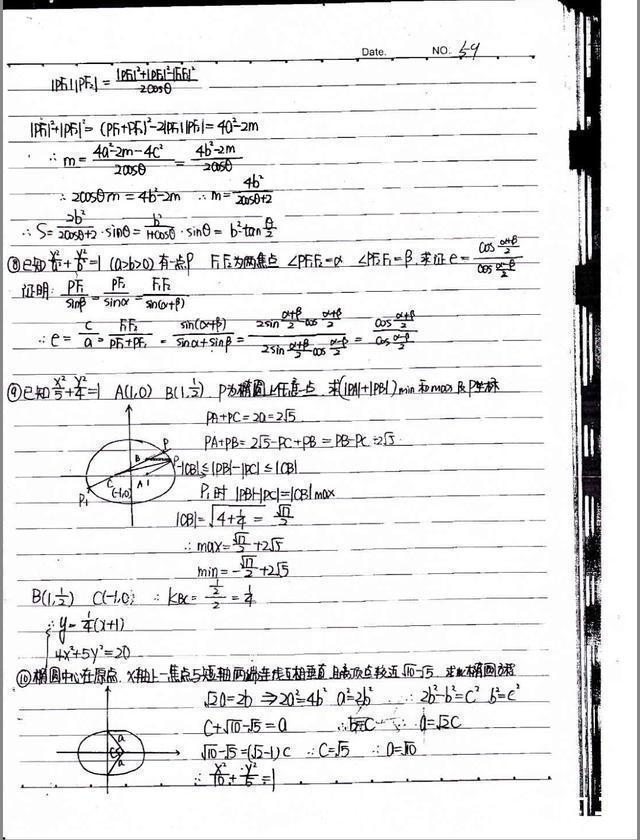 Date. NO. 59
|PF₁||PF₂| = (|PF₁|²+|PF₂|²-|F₁F₂|²)/(2cosθ)
|PF₁|²+|PF₂|² = (PF₁+PF₂)²-2|PF₁||PF₂| = 4a²-2m
∴ m = (4a²-2m-4c²)/(2cosθ) = (4b²-2m)/(2cosθ)
∴ 2cosθm = 4b²-2m ∴ m = 4b²/(2cosθ+2)
∴ S = 2b²/(2cosθ+2) · sinθ = b²/(1+cosθ) · sinθ = b²tan θ/2
⑧已知 x²/a²+y²/b²=1 (a>b>0) 有一点P F₁F₂为两焦点 ∠PF₁F₂=α ∠PF₂F₁=β, 求证 e = cos (α+β)/2 / cos (α-β)/2
证明: PF₁/sinβ = PF₂/sinα = F₁F₂/sin(α+β)
∴ e = c/a = F₁F₂/(PF₁+PF₂) = sin(α+β)/(sinα+sinβ) = (2sin (α+β)/2 cos (α+β)/2)/(2sin (α+β)/2 cos (α-β)/2) = cos (α+β)/2 / cos (α-β)/2
⑨已知 x²/5+y²/4=1 A(1,0) B(1,1/2) P为椭圆上任意一点 求(|PA|+|PB|)min和max及P坐标
PA+PC=2a=2√5
PA+PB=2√5-PC+PB=PB-PC+2√5
-|CB|≤|PB|-|PC|≤|CB|
P₁时 |PB|-|PC|=|CB|max
|CB|=√(4+1/4)=√17/2
∴ max=√17/2+2√5
min=-√17/2+2√5
P B P C A 1 (-1,0) P₁
B(1,1/2) C(-1,0) ∴ k_BC = (1/2)/2 = 1/4
∴ y=1/4(x+1)
4x²+5y²=20
⑩椭圆中心在原点, x轴上一焦点与短轴两端连线互相垂直 且与顶点较近√10-√5, 求椭圆方程
√2a=2b ⇒2a²=4b² a²=2b² ∴ 2b²-b²=c² b²=c²
c+√10-√5=a ∴b=c ∴ a=√2c
√10-√5=(√2-1)c ∴c=√5 ∴ a=√10
∴ x²/10+y²/5=1
a c a